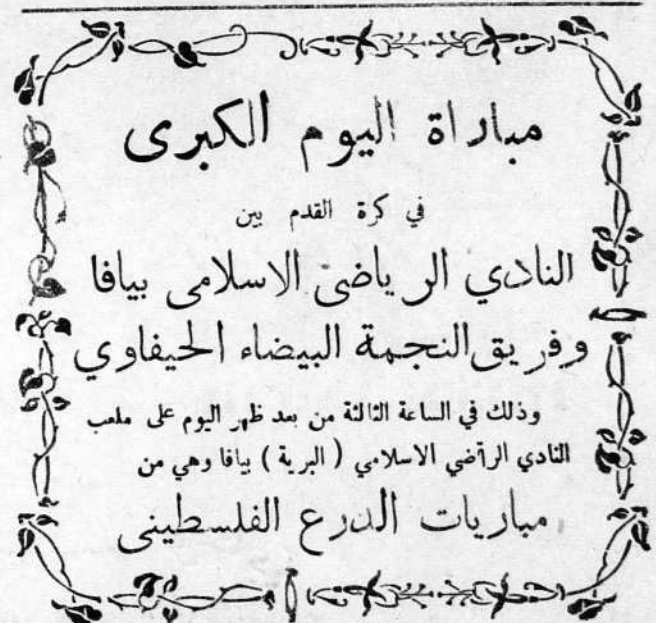 مباراة اليوم الكبرى
في كرة القدم بين
النادي الرياضي الاسلامي بيافا
وفريق النجمة البيضاء الحيفاوي
وذلك في الساعة الثالثة من بعد ظهر اليوم على ملعب
النادي الرياضي الاسلامي ( البرية ) بيافا وهي من
مباريات الدرع الفلسطيني